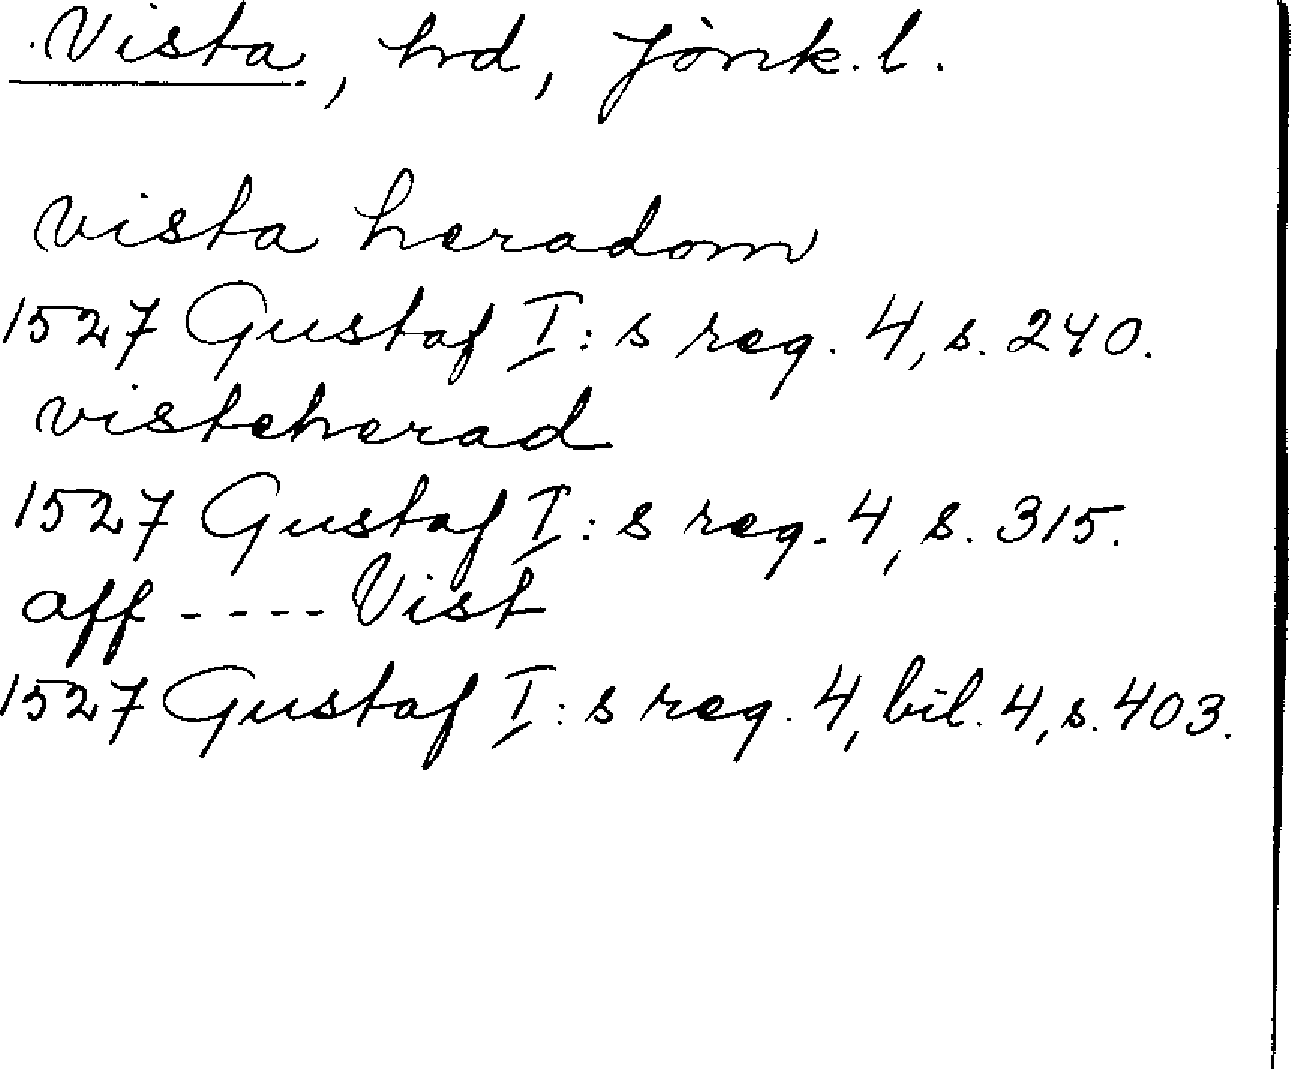 Vista, hd, Jönk. l.
vista heradom
1527 Gustaf I:s reg. 4, s. 240.
visteherad
1527 Gustaf I:s reg. 4, s. 315.
aff ---- Vist
1527 Gustaf I:s reg. 4, bil. 4, s. 403.